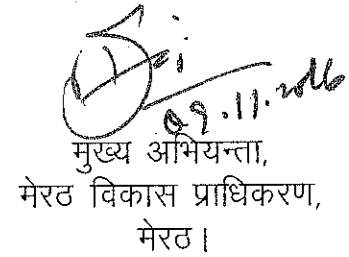 09.11.2016
मुख्य अभियन्ता,
मेरठ विकास प्राधिकरण,
मेरठ।